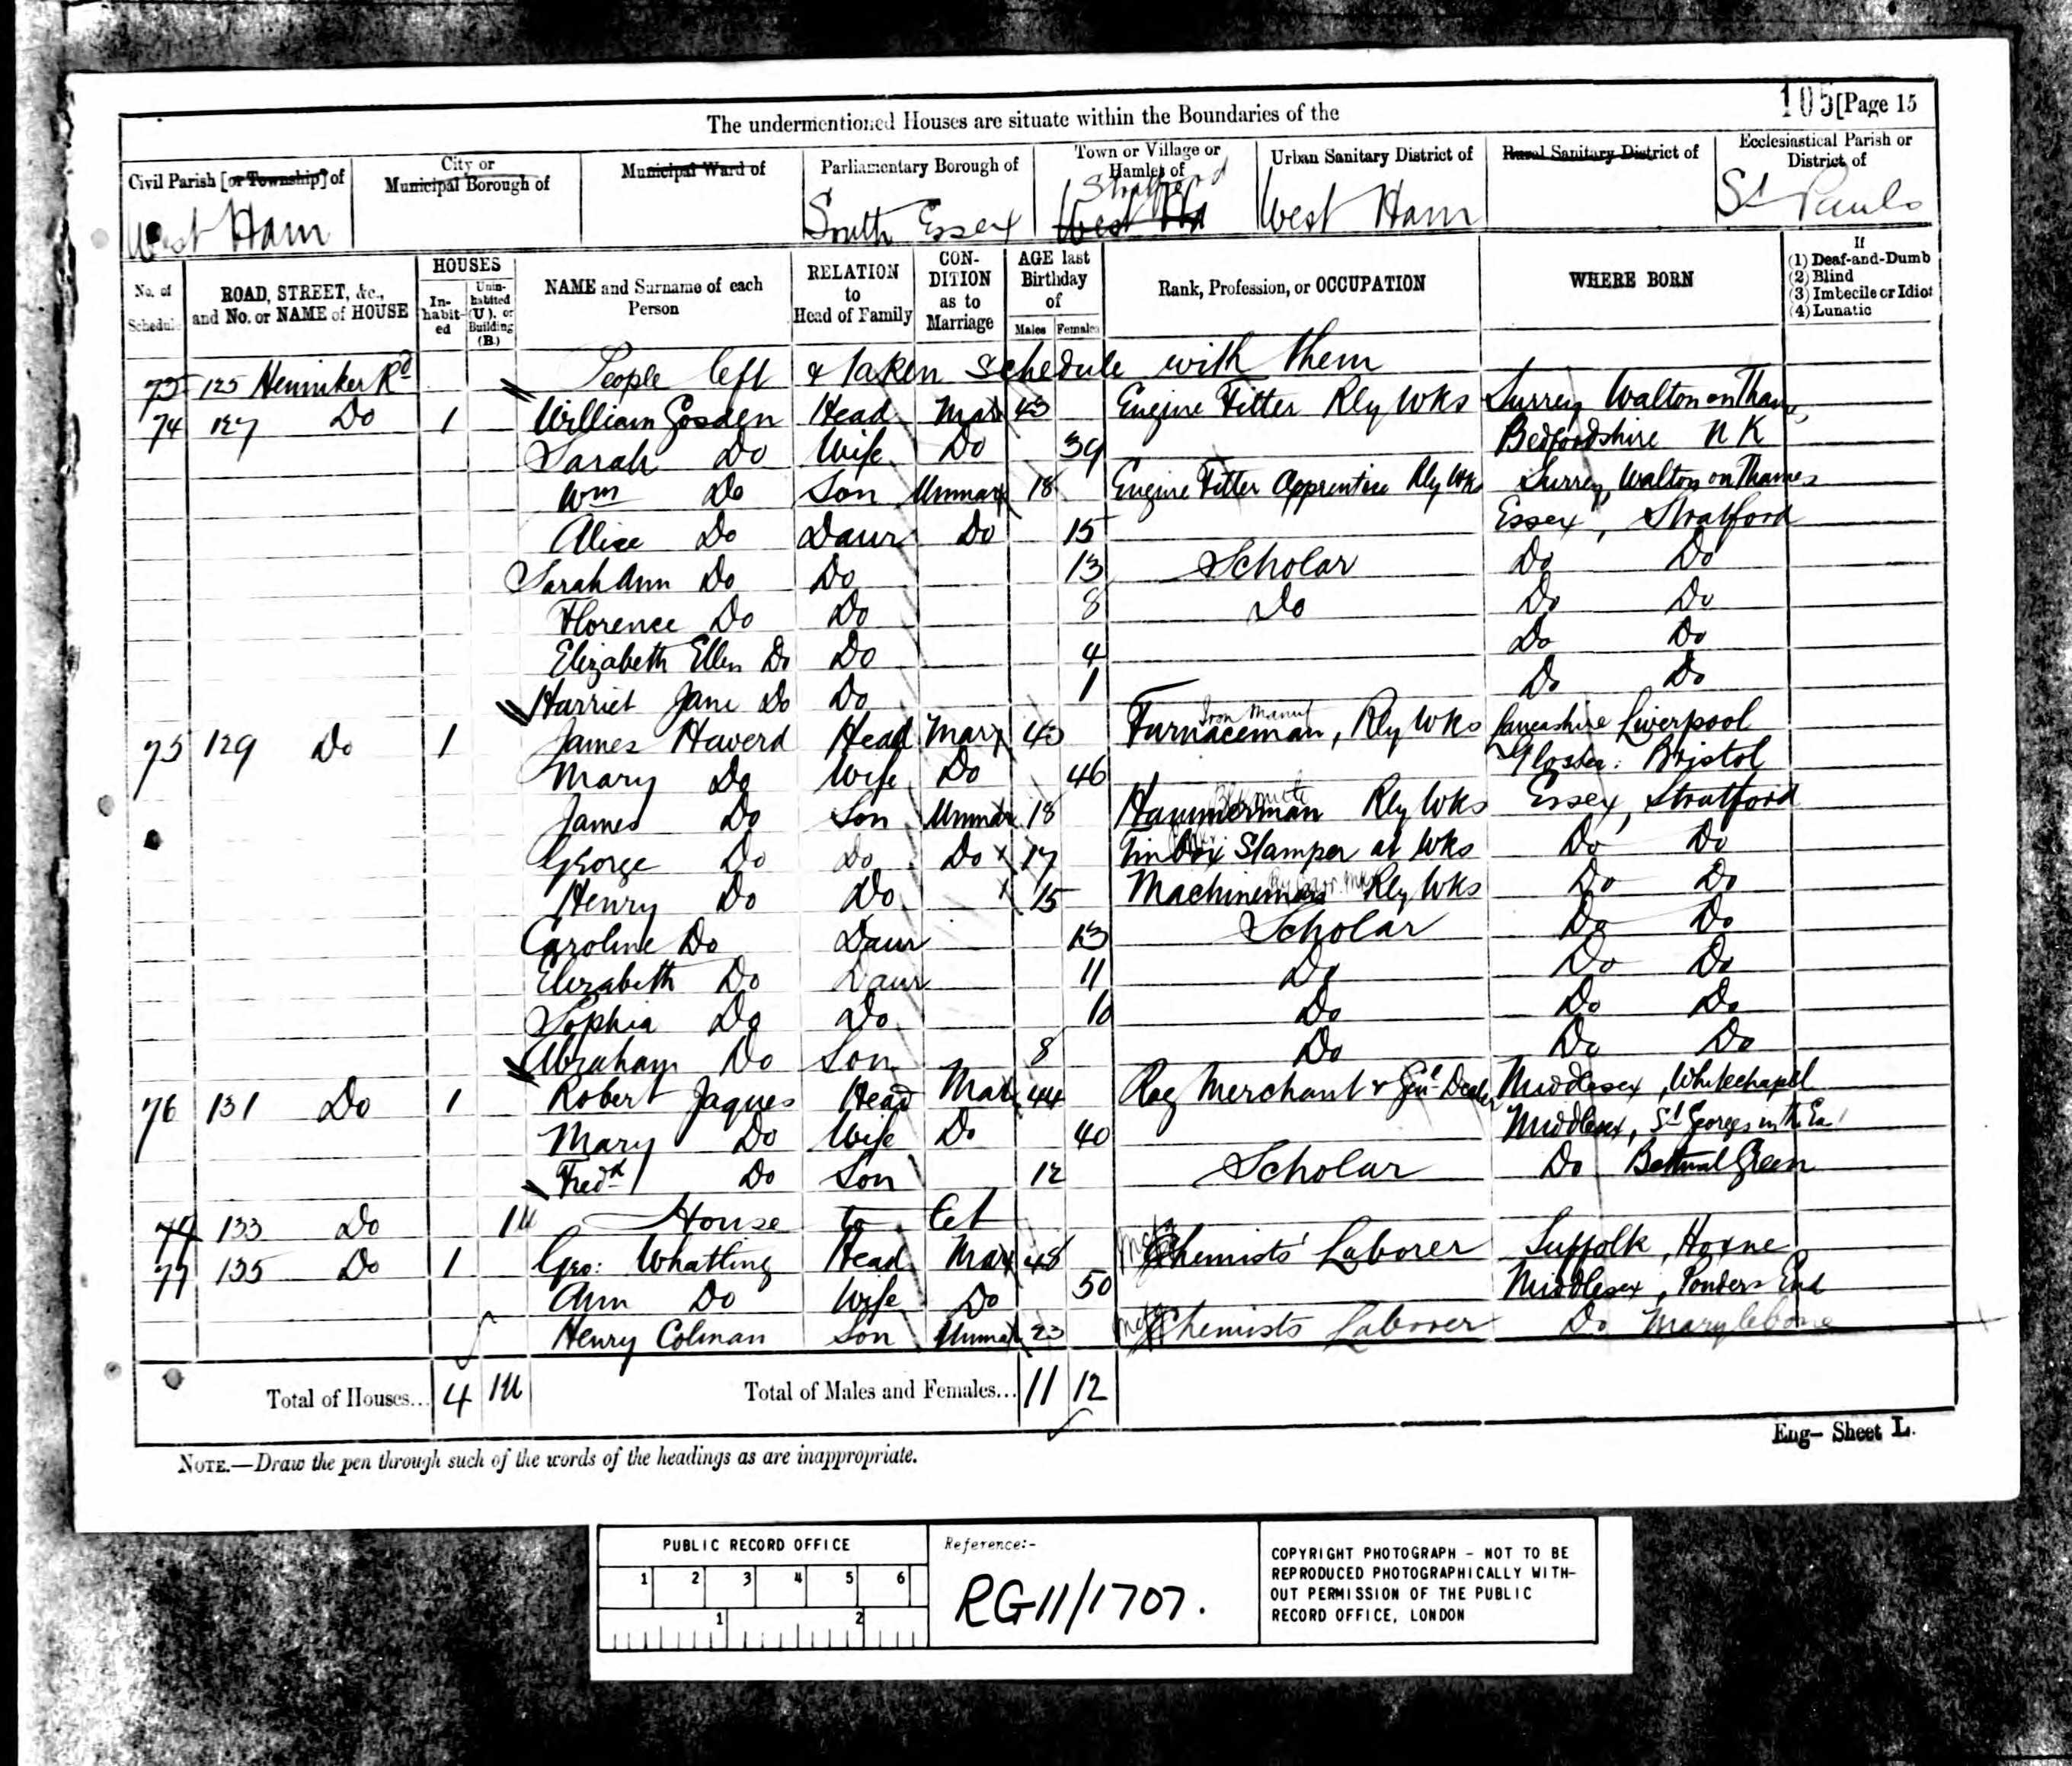 105 [Page 15
The undermentioned Houses are situate within the Boundaries of the
Civil Parish [or Township] of
City or Municipal Borough of
Municipal Ward of
Parliamentary Borough of
Town or Village or Hamlet of
Urban Sanitary District of
Rural Sanitary District of
Ecclesiastical Parish or District of
West Ham South Essex Stratford West Ham West Ham St Pauls
No. of Schedule
ROAD, STREET, &c., and No. or NAME of HOUSE
HOUSES
In-habit-ed
Unin-habited (U.), or Building (B.)
NAME and Surname of each Person
RELATION to Head of Family
CON-DITION as to Marriage
AGE last Birthday of
Males Females
Rank, Profession, or OCCUPATION
WHERE BORN
If
(1) Deaf-and-Dumb
(2) Blind
(3) Imbecile or Idiot
(4) Lunatic
125 Henniker Rd People left & taken schedule with them
74 127 Do 1 William Gosden Head Mar 43 Engine Fitter Rly Wks Surrey Walton on Thames
Sarah Do Wife Do 39 Bedfordshire N K
Wm Do Son Unmar 18 Engine Fitter Apprentice Rly Wks Surrey, Walton on Thames
Alice Do Daur Do 15 Essex, Stratford
Sarah Ann Do Do 13 Scholar Do Do
Florence Do Do 8 Do Do Do
Elizabeth Ellen Do Do 4 Do Do
Harriet Jane Do Do 1 Do Do
75 129 Do 1 James Haverd Head Mar 43 Furnaceman, Iron Manuf Rly Wks Lancashire Liverpool
Mary Do Wife Do 46 Gloster: Bristol
James Do Son Unmar 18 Hammerman Rly Wks Essex, Stratford
George Do Do Do 17 Stamper at Wks Do Do
Henry Do Do 15 Machineman Rly Wks Do Do
Caroline Do Daur 13 Scholar Do Do
Elizabeth Do Daur 11 Do Do Do
Sophia Do Do 10 Do Do Do
Abraham Do Son 8 Do Do Do
76 131 Do 1 Robert Jaques Head Mar 44 Rag Merchant & Genl Dealer Middlesex, Whitechapel
Mary Do Wife Do 40 Middlesex, St Georges in the Ea
Fredk Do Son 12 Scholar Do Bethnal Green
77 133 Do 1U House to Let
77 135 Do 1 Geo: Whatling Head Mar 48 Chemists' Laborer Suffolk, Hoxne
Ann Do Wife Do 50 Middlesex, Ponders End
Henry Colman Son Unmar 23 Chemists Laborer Do Marylebone
Total of Houses... 4 1U Total of Males and Females... 11 12
Eng— Sheet L.
NOTE.—Draw the pen through such of the words of the headings as are inappropriate.
PUBLIC RECORD OFFICE
1 2 3 4 5 6
1 2
Reference:-
RG11/1707.
COPYRIGHT PHOTOGRAPH - NOT TO BE
REPRODUCED PHOTOGRAPHICALLY WITH-
OUT PERMISSION OF THE PUBLIC
RECORD OFFICE, LONDON